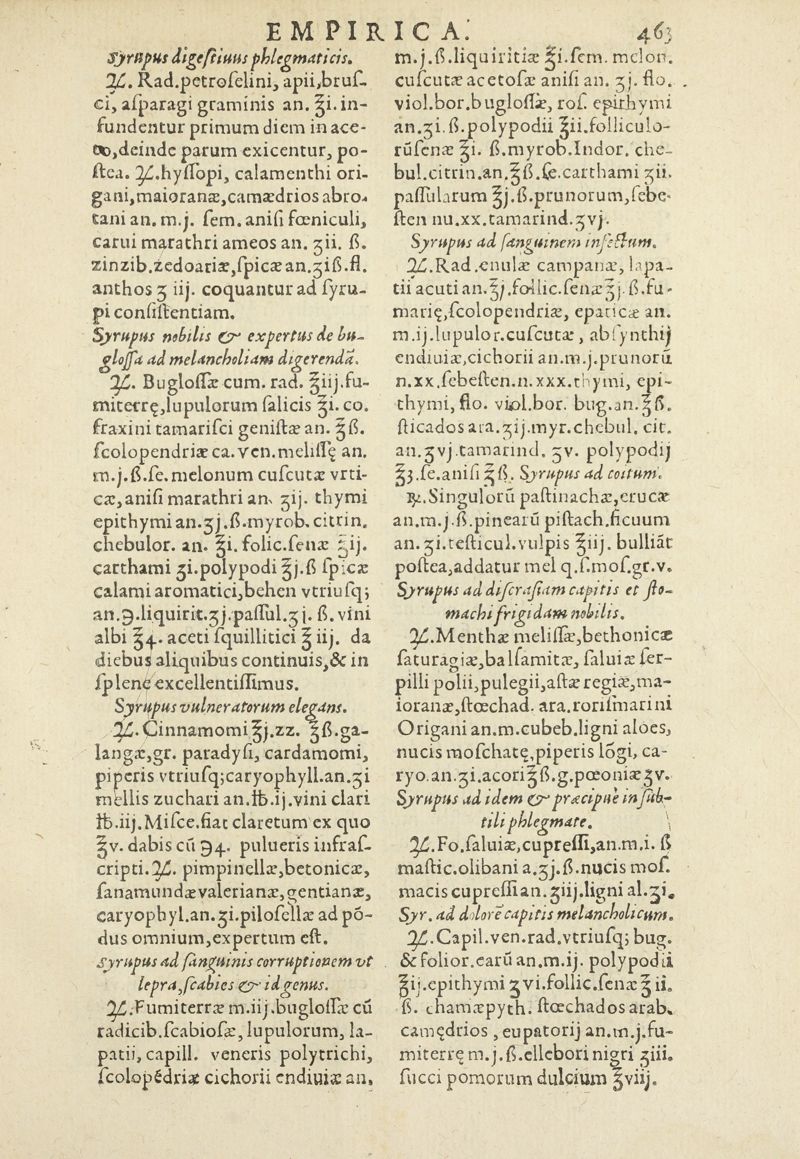 EMPIRICA. 463
Syrupus digestiuus phlegmaticis.
℞. Rad. petroſelini, apii, bruſ-
ci, aſparagi graminis an. ℥i. in-
fundentur primum diem in ace-
to, deinde parum exicentur, po-
ſtea. ℞. hyſſopi, calamenthi ori-
gani, maioranæ, camædrios abro-
tani an. m.j. ſem. aniſi fœniculi,
carui marathri ameos an. ʒii. ß.
zinzib. zedoariæ, ſpicæ an. ʒiß. fl.
anthos ʒ iij. coquantur ad ſyru-
pi conſiſtentiam.
Syrupus nobilis & expertus de bu-
gloſſa ad melancholiam digerendā.
℞. Bugloſſæ cum. rad. ℥iij. fu-
miterrę, lupulorum ſalicis ℥i. co.
fraxini tamariſci geniſtæ an. ℥ß.
ſcolopendriæ ca. ven. meliſſę an.
m.j.ß. ſe. melonum cuſcutæ vrti-
cæ, aniſi marathri an. ʒij. thymi
epithymi an. ʒj.ß. myrob. citrin.
chebulor. an. ℥i. folic. ſenæ ℥ij.
carthami ʒi. polypodi ℥j.ß ſpicæ
calami aromatici, behen vtriuſq;
an. ℈. liquirit. ʒj. paſſul. ʒj. ß. vini
albi ℥4. aceti ſquillitici ℥ iij. da
diebus aliquibus continuis, & in
ſplene excellentiſſimus.
Syrupus vulneratorum elegans.
℞. Cinnamomi ℥j. zz. ℥ß. ga-
langæ, gr. paradyſi, cardamomi,
piperis vtriuſq; caryophyll. an. ʒi
mellis zuchari an. ℔. ij. vini clari
℔. iij. Miſce. fiat claretum ex quo
℥v. dabis cū ℈4. pulueris infraſ-
cripti. ℞. pimpinellæ, betonicæ,
ſanamundæ valerianæ, gentianæ,
caryophyl. an. ʒi. piloſellæ ad pō-
dus omnium, expertum eſt.
Syrupus ad ſanguinis corruptionem vt
lepra, ſcabies & id genus.
℞. Fumiterræ m. iij. bugloſſæ cū
radicib. ſcabioſæ, lupulorum, la-
patii, capill. veneris polytrichi,
ſcolopēdriæ cichorii endiuiæ an.
m.j.ß. liquiritiæ ℥i. ſem. melon.
cuſcutæ acetoſæ aniſi an. ʒj. flo.
viol. bor. bugloſſæ, roſ. epithymi
an. ʒi. ß. polypodii ℥ii. folliculo-
rū ſenæ ℥i. ß. myrob. Indor. che-
bul. citrin. an. ℥ß. ſe. carthami ʒii.
paſſularum ℥j.ß. prunorum, ſebe-
ſten nu. xx. tamarind. ʒvj.
Syrupus ad ſanguinem infectum.
℞. Rad. enulæ campanæ, lapa-
tii acuti an. ℥j. follic. ſenæ ℥j. ß. fu-
marię, ſcolopendriæ, epaticæ an.
m. ij. lupulor. cuſcutæ, abſynthij
endiuiæ, cichorii an. m.j. prunorū
n. xx. ſebeſten. n. xxx. thymi, epi-
thymi, flo. viol. bor. bug. an. ℥ß.
ſticados ara. ʒij. myr. chebul. cit.
an. ʒvj. tamarind. ʒv. polypodij
℥3. ſe. aniſi ℥ß. Syrupus ad coitum.
℞. Singulorū paſtinachæ, erucæ
an. m.j.ß. pinearū piſtach. ficuum
an. ʒi. teſticul. vulpis ℥iij. bulliāt
poſtea, addatur mel q. ſ. moſ. gr. v.
Syrupus ad diſcraſiam capitis et ſto-
machi frigidam nobilis.
℞. Menthæ meliſſæ, bethonicæ
ſaturagiæ, balſamitæ, ſaluiæ ſer-
pilli polii, pulegii, aſtæ regiæ, ma-
ioranæ, ſtœchad. ara. roriſmarini
Origani an. m. cubeb. ligni aloes,
nucis moſchatę, piperis lōgi, ca-
ryo. an. ʒi. acori ℥ß. g. pœoniæ ʒv.
Syrupus ad idem & præcipuè in ſub-
tili phlegmate.
℞. Fo. ſaluiæ, cupreſſi, an. m. i. ß
maſtic. olibani a. ʒj. ß. nucis moſ.
macis cupreſſi an. ʒiij. ligni al. ʒi.
Syr. ad dolorē capitis melancholicum.
℞. Capil. ven. rad. vtriuſq; bug.
& folior. earū an. m. ij. polypodii
℥ij. epithymi ʒvi. follic. ſenæ ℥ ii.
ß. chamæpyth. ſtœchados arab.
camędrios, eupatorij an. m.j. fu-
miterrę m.j.ß. ellebori nigri ʒiii.
ſucci pomorum dulcium ℥viij.